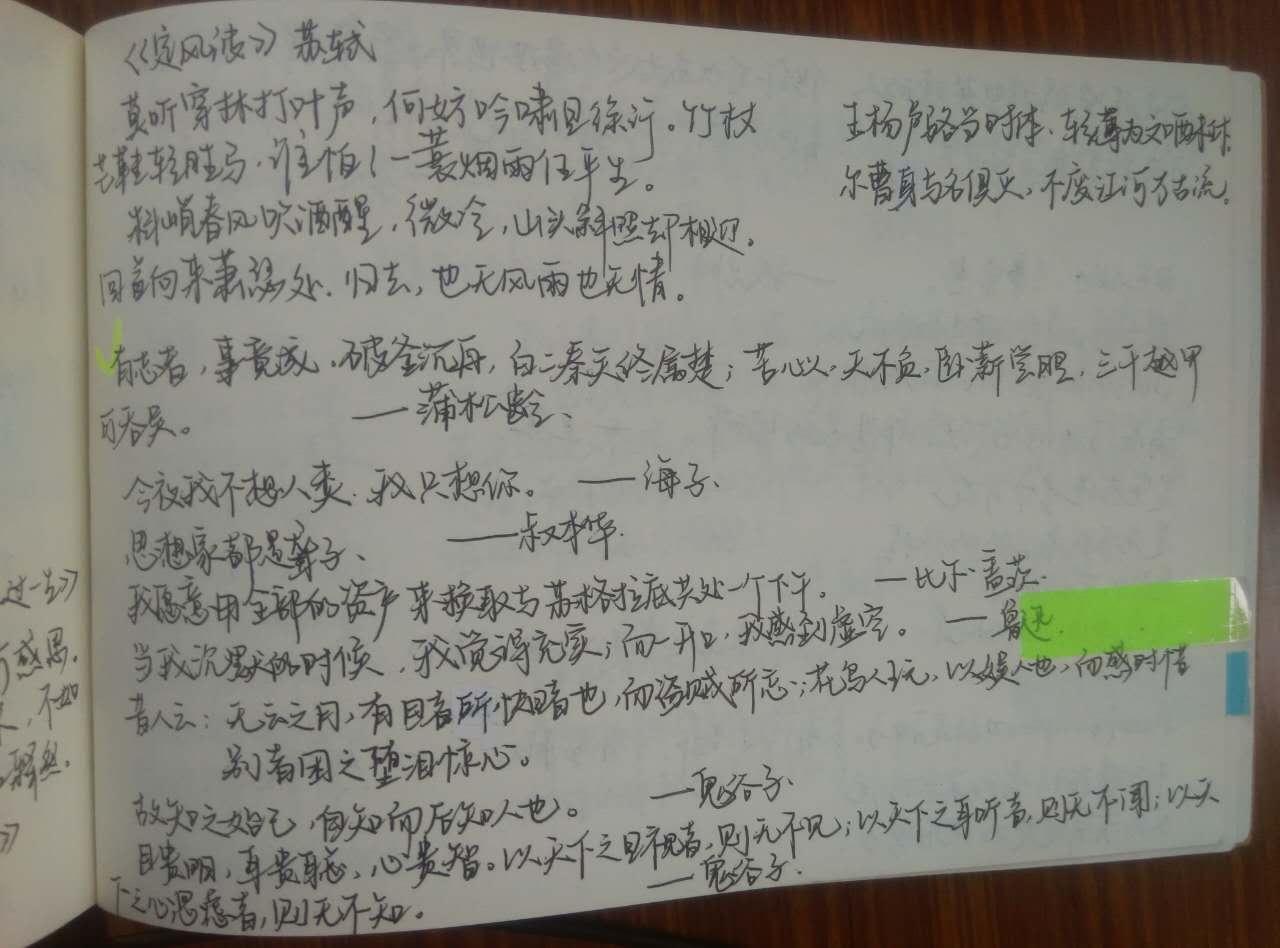 《定风波》 苏轼
莫听穿林打叶声，何妨吟啸且徐行。竹杖
芒鞋轻胜马，谁怕！一蓑烟雨任平生。
料峭春风吹酒醒，微冷，山头斜照却相迎。
回首向来萧瑟处，归去，也无风雨也无情。
王杨卢骆当时体，轻薄为文哂未休，
尔曹身与名俱灭，不废江河万古流。
有志者，事竟成，破釜沉舟，白二秦关终属楚；苦心人，天不负，卧薪尝胆，三千越甲
可吞吴。 ——蒲松龄、
今夜我不想人类，我只想你。 ——海子、
思想家都是聋子、 ——叔本华
我愿意用全部的资产来换取与苏格拉底共处一个下午。 —比尔·盖茨
当我沉默的时候，我觉得充实；而一开口，我感到虚空。 —鲁迅
昔人云：无云之月，有目者所快睹也，而盗贼所忌；花鸟人玩，以娱人也，而感时惜
别者因之堕泪惊心。
故知之始己，自知而后知人也。 —鬼谷子、
目贵明，耳贵聪，心贵智。以天下之目视者，则无不见；以天下之耳听者，则无不闻；以天
下之心思虑者，则无不知。 —鬼谷子、
过一生》
感恩。
，不如
释然
》